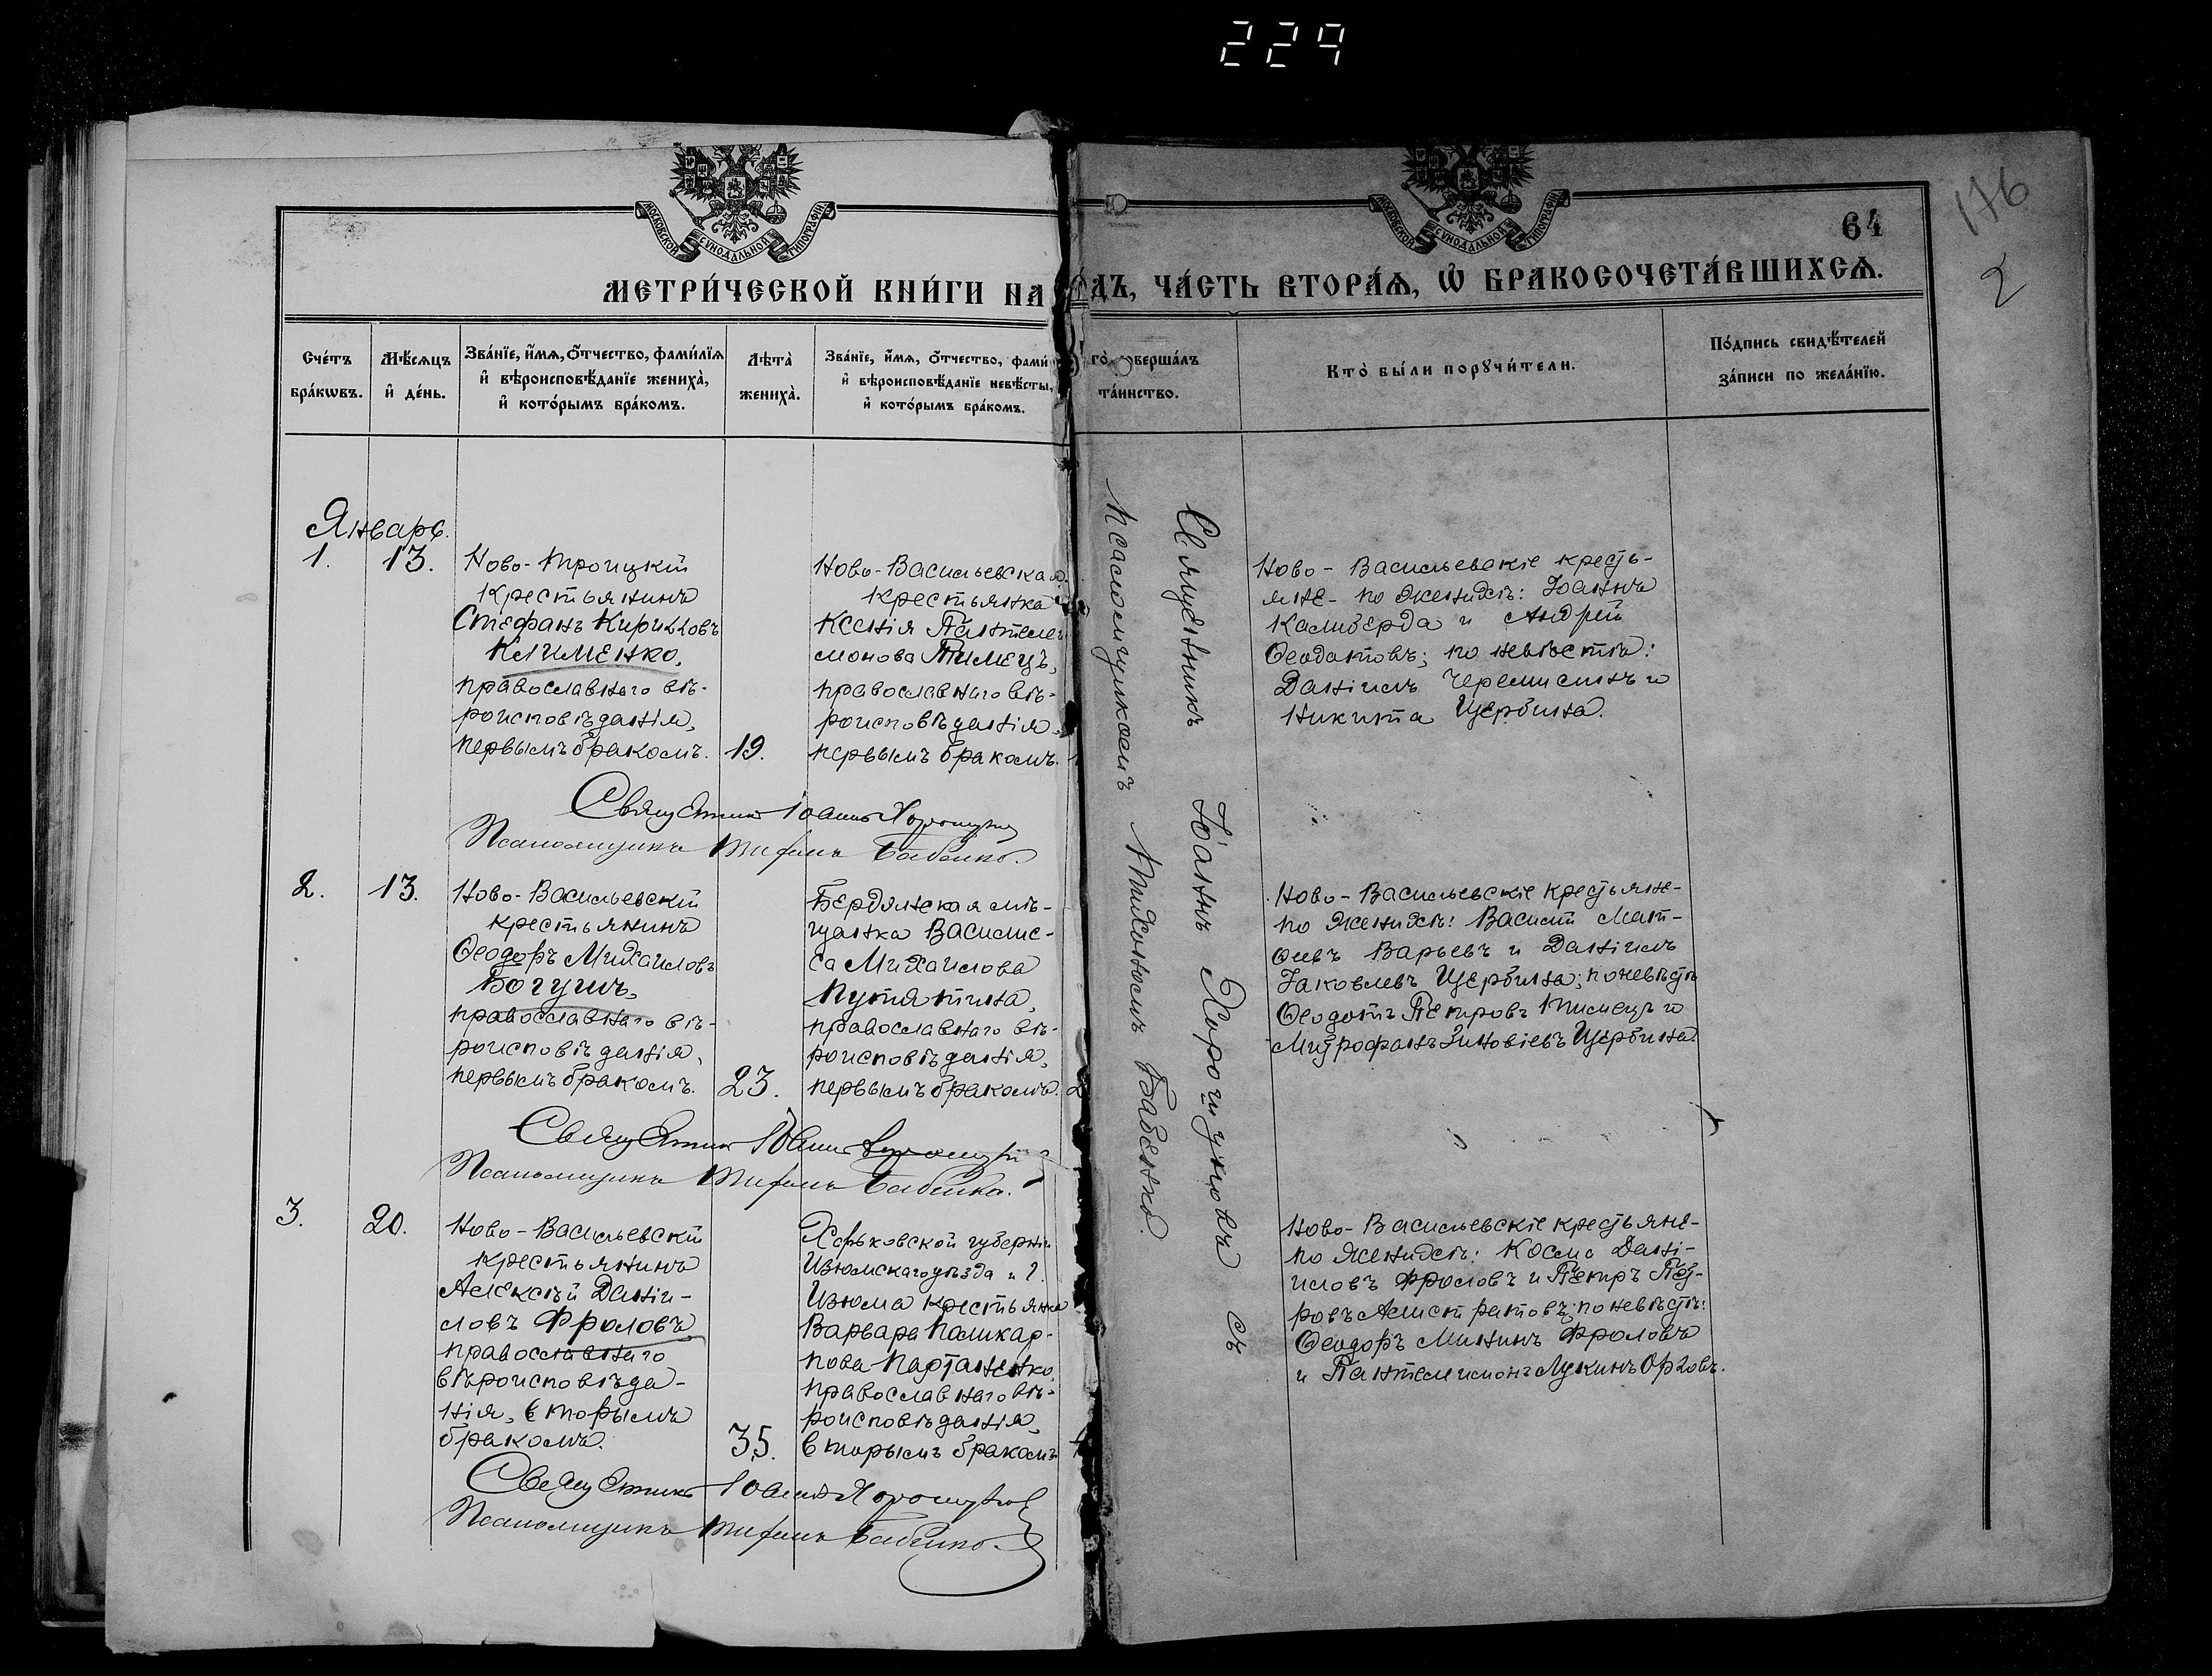 229
176
2
64
МОСКОВСКОЙ СѴНОДАЛЬНОЙ ТИПОГРАФІИ
МОСКОВСКОЙ СѴНОДАЛЬНОЙ ТИПОГРАФІИ
МЕТРИ́ЧЕСКОЙ КНИ́ГИ НА ГО́ДЪ, ЧА́СТЬ ВТОРА́Ѧ, Ѽ БРАКОСОЧЕТА́ВШИХСѦ.
Сче́тъ
бра́кѡвъ.
Мѣ́сѧцъ
и҆ де́нь.
Зва́нїе, и҆́мѧ, ѻ҆́тчество, фами́лїѧ
и҆ вѣроисповѣ́данїе жениха̀,
и҆ кото́рымъ бра́комъ.
Лѣта̀
жениха̀.
Зва́нїе, и҆́мѧ, ѻ҆́тчество, фами
и҆ вѣроисповѣ́данїе невѣ́сты,
и҆ кото́рымъ бра́комъ.
соверша́лъ
та́инство.
Кто̀ бы́ли порꙋчи́тели.
По́дпись свидѣ́телей
за́писи по жела́нїю.
Январь.
1.
13.
Ново-Троицкій
крестьянинъ
Стефанъ Кирилловъ
Клименко,
православнаго вѣ-
роисповѣданія,
первымъ бракомъ.
19.
Ново-Васильевская
крестьянка
Ксенія Пантелеи
монова Тимецъ,
православнаго вѣ-
роисповѣданія,
первымъ бракомъ.
Священникъ Іоаннъ Хорошуновъ съ
псаломщикомъ Тихономъ Бабенко.
Ново-Васильевскіе кресть-
яне - по женихѣ: Іоаннъ
Калиберда и Андрей
Ѳеодотовъ; по невѣстѣ:
Даніилъ Черемисинъ и
Никита Щербина.
Священникъ Іоаннъ Хорошуновъ
Псаломщикъ Тихонъ Бабенко.
2.
13.
Ново-Васильевскій
крестьянинъ
Ѳеодоръ Михаиловъ
Богушъ,
православнаго вѣ-
роисповѣданія,
первымъ бракомъ.
23.
Бердянская мѣ-
щанка Василис-
са Михаилова
Путятина,
православнаго вѣ-
роисповѣданія,
первымъ бракомъ.
2
Ново-Васильевскіе крестьяне-
по женихѣ: Василій Мат-
ѳеевъ Варьевъ и Даніилъ
Іаковлевъ Щербина; по невѣстѣ
Ѳеодотъ Петровъ Тимецъ и
Митрофанъ Зиновіевъ Щербина.
Священникъ Іоаннъ Хорошуновъ
Псаломщикъ Тихонъ Бабенко.
3.
20.
Ново-Васильевскій
крестьянинъ
Алексѣй Даніи-
ловъ Фроловъ
православнаго
вѣроисповѣда-
нія, вторымъ
бракомъ.
35.
Харьковской губерніи
Изюмскаго уѣзда и г.
Изюма крестьянка
Варвара Поликар-
пова Партаненко,
православнаго вѣ-
роисповѣданія,
вторымъ бракомъ
Ново-Васильевскіе крестьяне-
по женихѣ: Косма Дани-
иловъ Фроловъ и Петръ Пет-
ровъ Алистратовъ; по невѣстѣ:
Ѳеодоръ Мининъ Фроловъ
и Пантелеимонъ Лукинъ Орловъ.
Священникъ Іоаннъ Хорошуновъ
Псаломщикъ Тихонъ Бабенко.